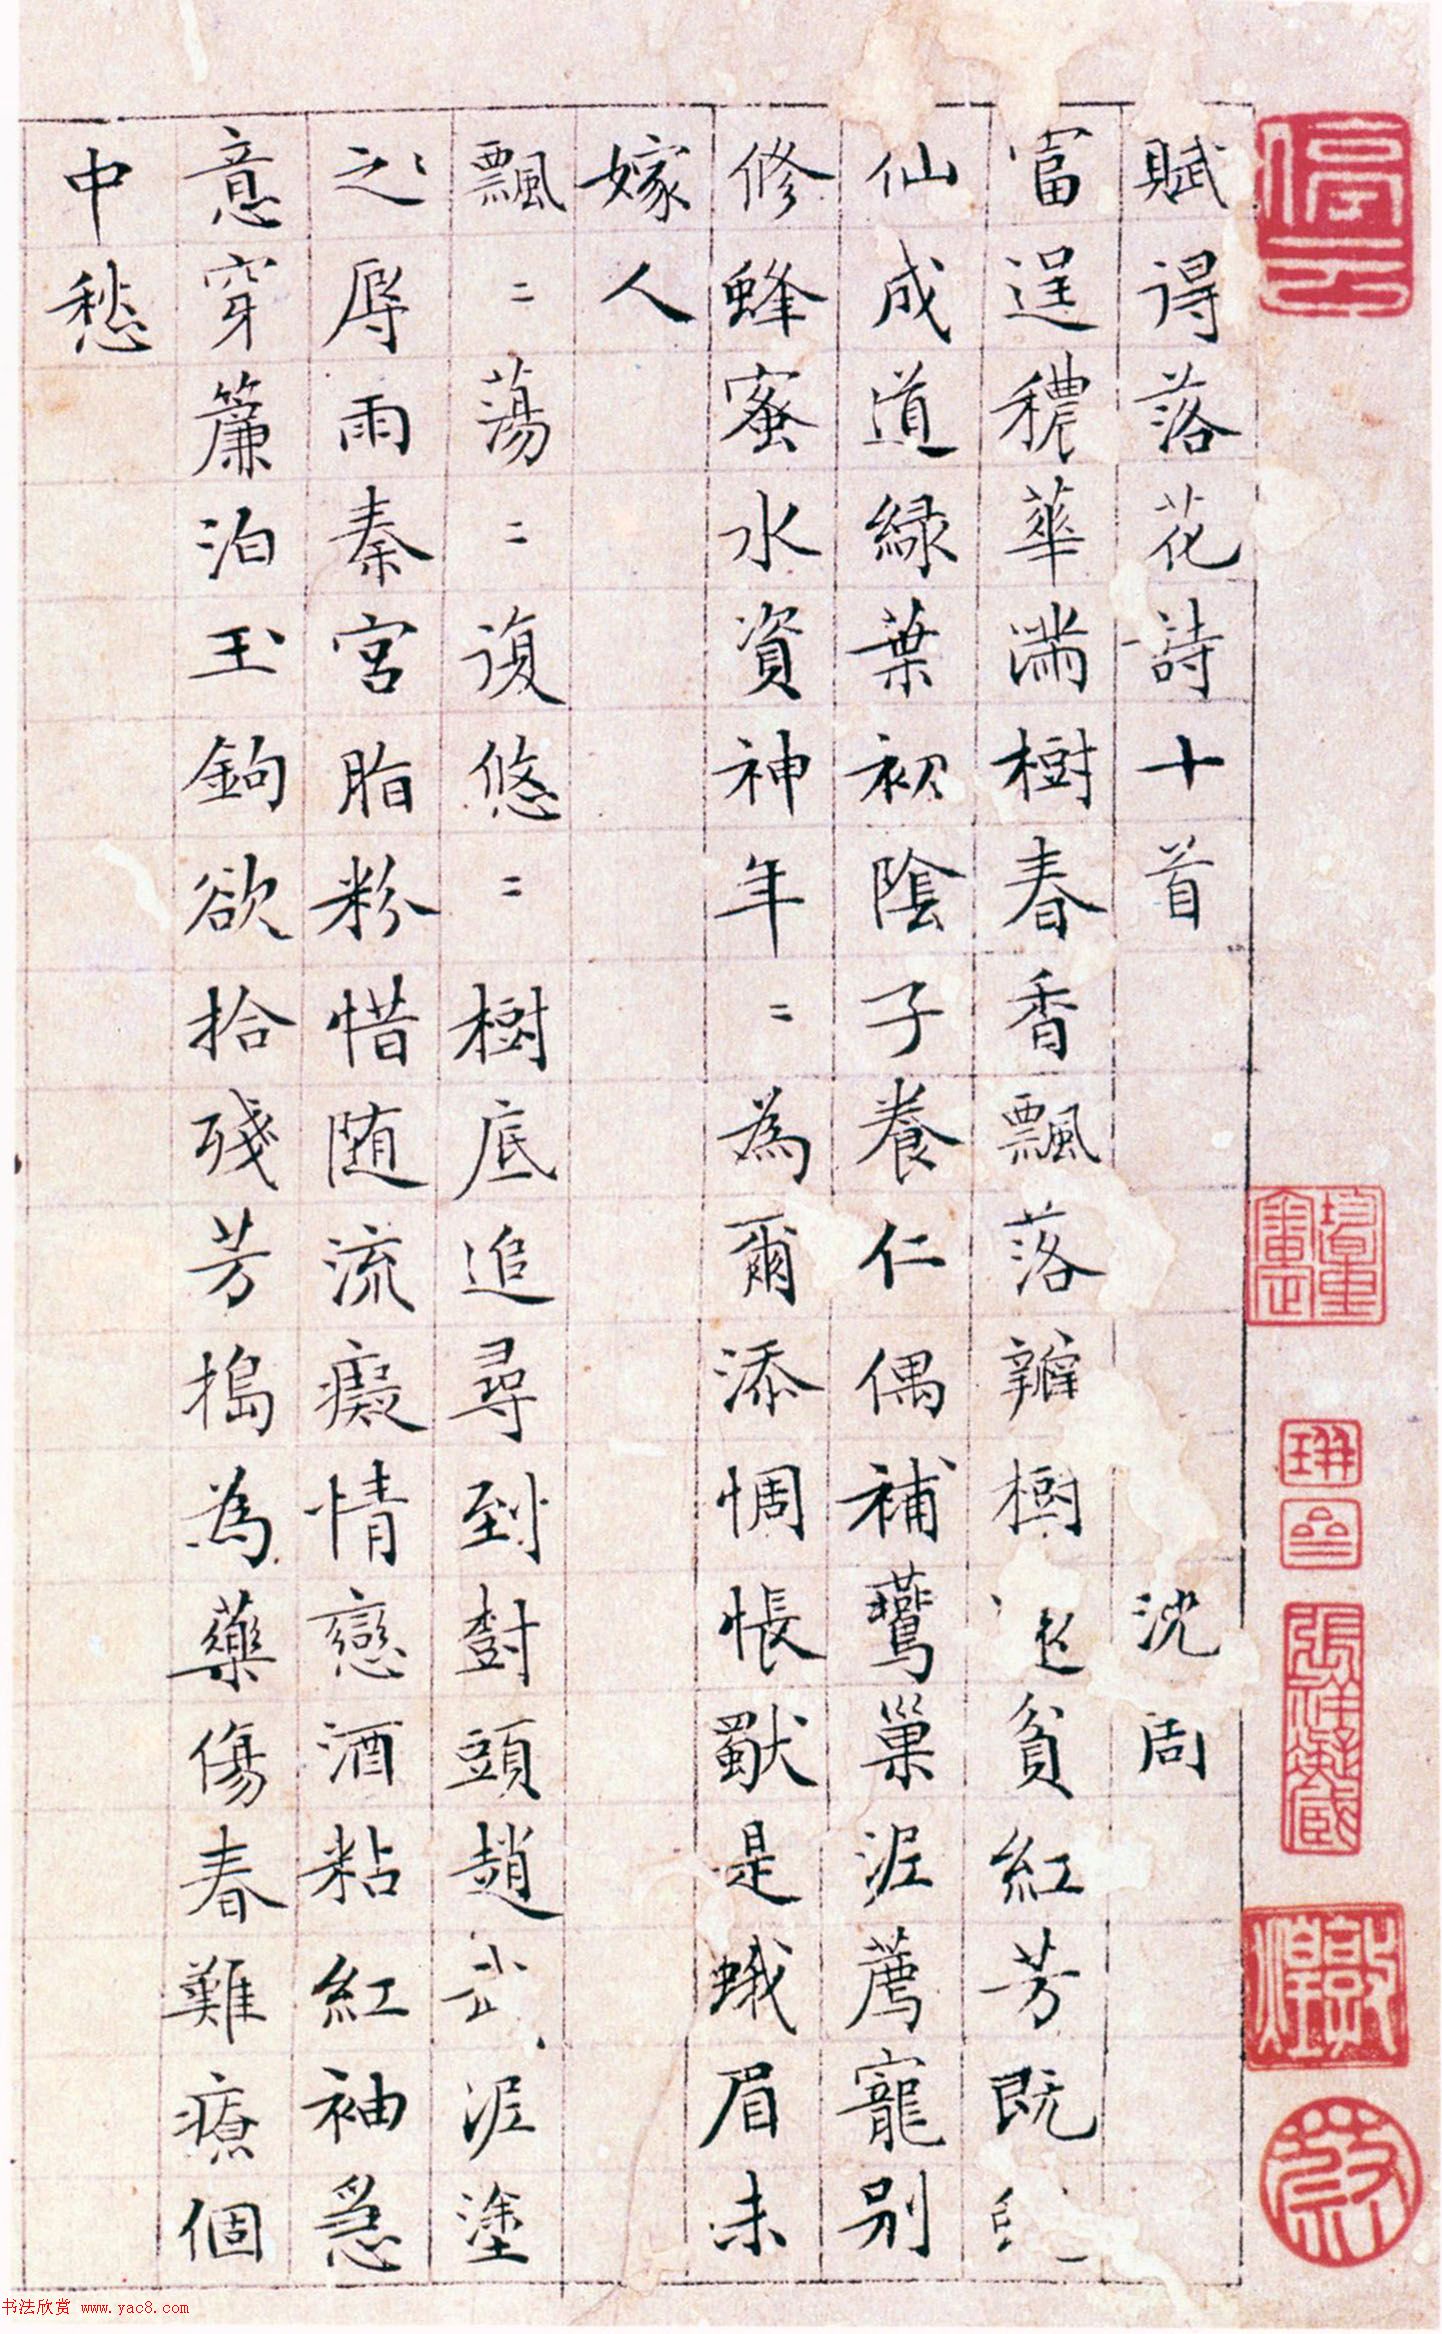 賦得落花詩十首 沈周
富逞穠華滿樹春香飄落瓣樹還貧紅芳既
仙成道緑葉初陰子養仁偶補鷰巢泥薦寵别
修蜂蜜水資神年〻為爾添惆悵獸是蛾眉未
嫁人
飄〻蕩〻復悠〻樹底追尋到樹頭趙武泥塗
之辱雨秦宮脂粉惜随流癡情戀酒粘紅袖急
意穿簾泊玉鉤欲拾殘芳搗為藥傷春難療個
中愁
停云
敦煌
蔡
书法欣赏 www.yac8.com